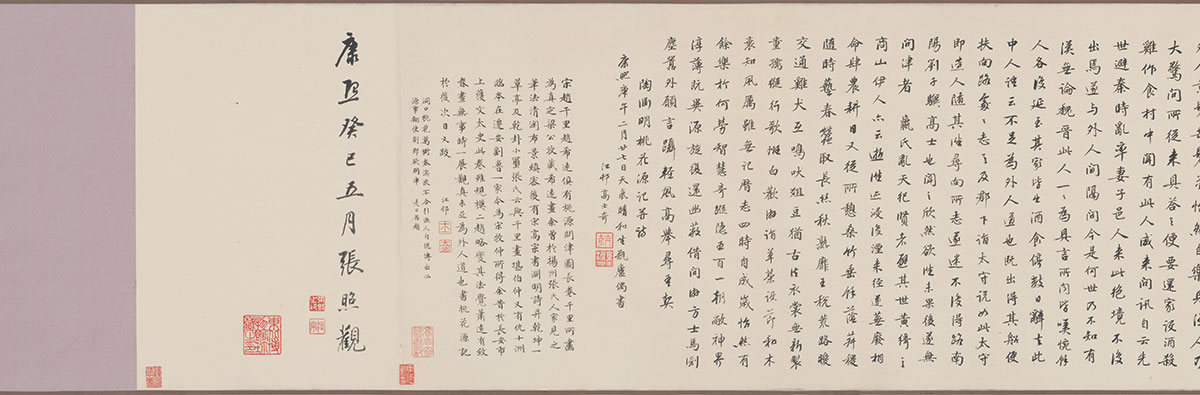 大驚問所從来具答之便要還家設酒殺
雞作食村中聞有此人咸来問訊自云先
世避秦時亂率妻子邑人来此絶境不復
出焉遂与外人間隔問今是何世乃不知有
漢無論魏晉此人一一為具言所聞皆嘆惋餘
人各復延至其家皆出酒食停數日辭去此
中人語云不足為外人道也既出得其船便
扶向路處處志之及郡下詣太守説如此太守
即遣人隨其往尋向所志遂迷不復得路南
陽劉子驥高士也聞之欣然欲往未果後遂無
問津者 嬴氏亂天紀賢者避其世黄綺之
商山伊人亦云逝往迹浸復湮来徑遂蕪廢相
命肆農耕日入從所憩桑竹垂餘蔭菽稷
隨時藝春蠶取長絲秋熟靡王税荒路曖
交通雞犬互鳴吠俎豆猶古法衣裳無新製
童孺縱行歌斑白歡游詣草榮識節和木
衰知風厲雖無記曆志四時自成歲怡然有
餘樂於何勞智慧奇蹤隱五百一朝敞神界
淳薄既異源旋復還幽蔽借問游方士焉測
塵囂外願言躡輕風高舉尋吾契
陶淵明桃花源記并詩
康熙庚午二月廿七日天氣晴和坐觀廬偶書
江邨高士奇
宋趙千里趙希遠俱有桃源問津圖長卷千里所畫
為真定梁公收藏希遠畫余曾於揚州張氏人家見之
筆法清潤布景縝密後有宋高宗書淵明詩并乾坤一
草亭及乾卦小璽張氏云與千里畫堪伯仲又有仇十洲
臨本在遼安劉魯一家今為宋牧仲所得余昔於長安市
上獲文太史此卷雖規橅二趙略變其法覺蕭遠有致
春晝無事時一展觀真未足為外人道也書桃花源記
於後次日又題
江邨
洞口桃花萬樹春
康熙癸巳五月張照觀